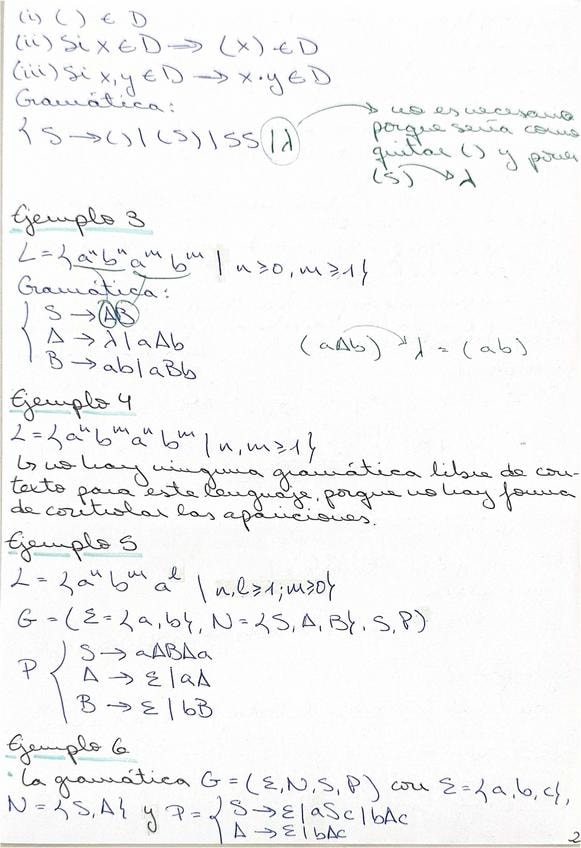 (i) ( ) ∈ D
(ii) Si x ∈ D → (x) ∈ D
(iii) Si x, y ∈ D → x·y ∈ D
Gramática:
{ S → () | (S) | SS | λ
→ no es necesario
porque sería como
quitar () y poner
(S) → λ
Ejemplo 3
L = {aⁿ bⁿ aᵐ bᵐ | n ≥ 0, m ≥ 1}
Gramática:
S → AB
A → λ | aAb
B → ab | aBb
(aAb) → λ = (ab)
Ejemplo 4
L = {aⁿ bᵐ aⁿ bᵐ | n, m ≥ 1}
↳ no hay ninguna gramática libre de con-
texto para este lenguaje, porque no hay forma
de controlar las apariciones.
Ejemplo 5
L = {aⁿ bᵐ aˡ | n, l ≥ 1; m ≥ 0}
G = (Σ = {a, b}, N = {S, A, B}, S, P)
P { S → aABAa
A → ε | aA
B → ε | bB
Ejemplo 6
· La gramática G = (Σ, N, S, P) con Σ = {a, b, c},
N = {S, A} y P = { S → ε | aSc | bAc
A → ε | bAc
2